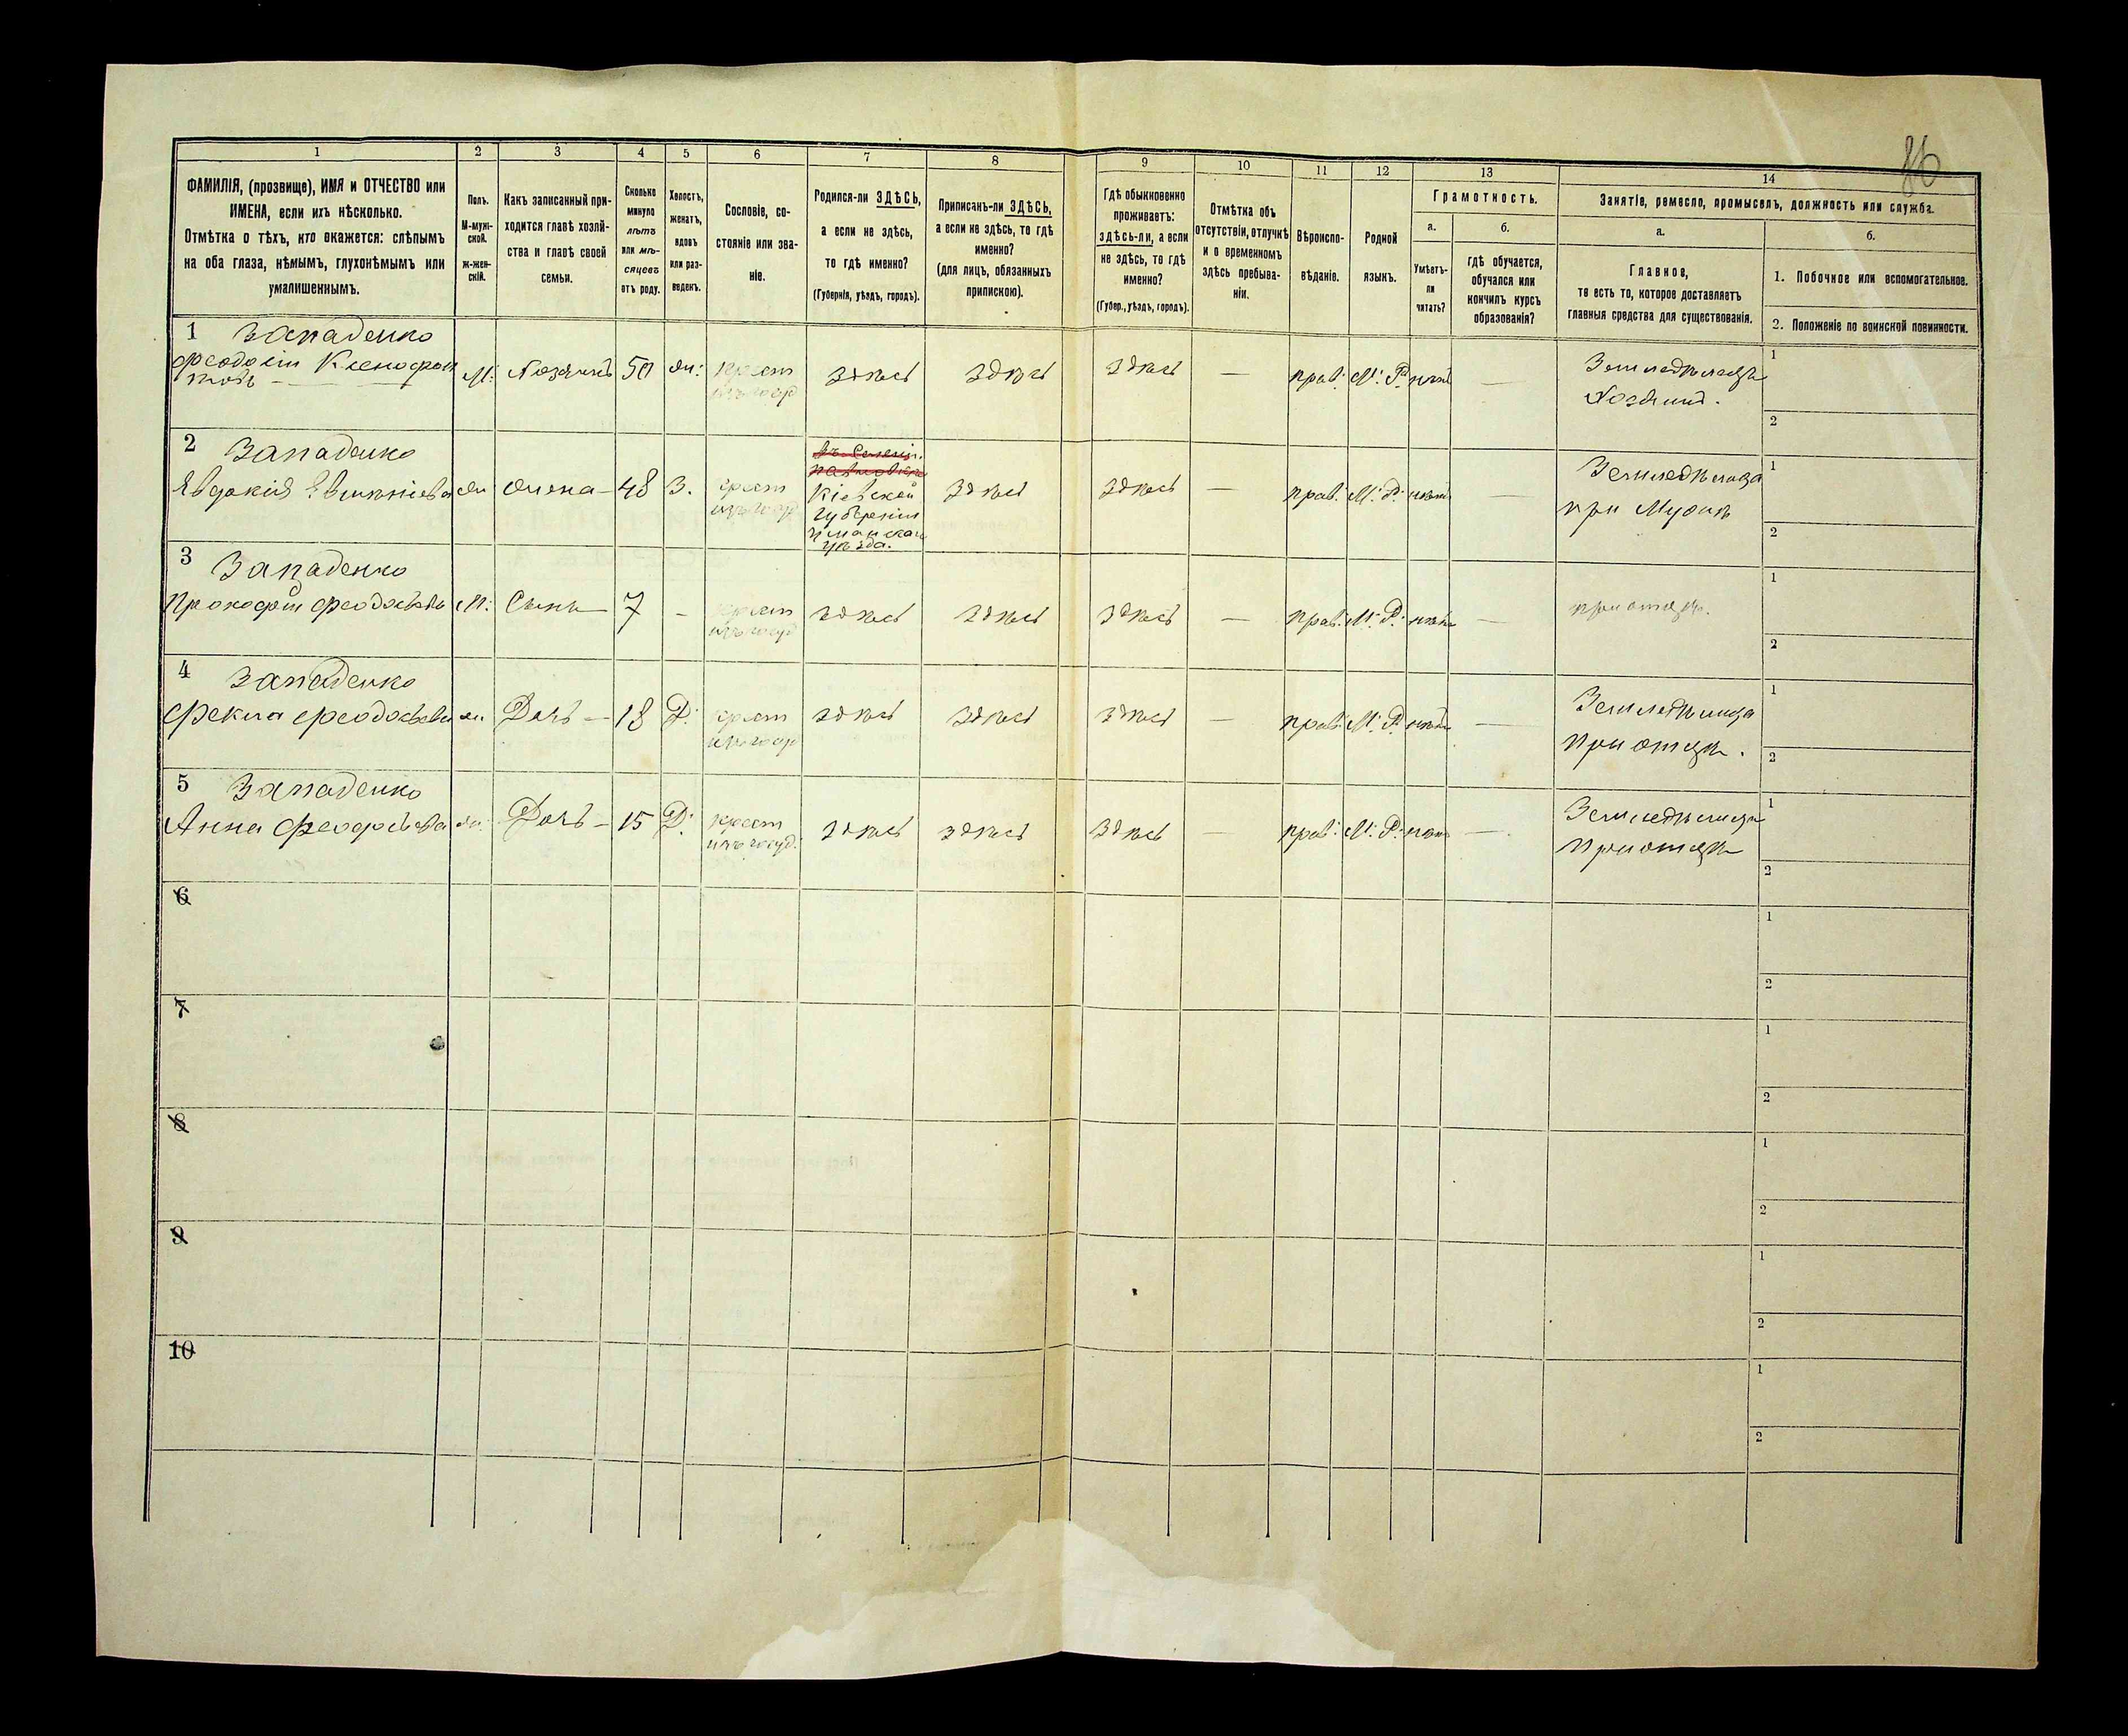 86
1 2 3 4 5 6 7 8 9 10 11 12 13 14
ФАМИЛІЯ, (прозвище), ИМЯ и ОТЧЕСТВО или
ИМЕНА, если ихъ нѣсколько.
Отмѣтка о тѣхъ, кто окажется: слѣпымъ
на оба глаза, нѣмымъ, глухонѣмымъ или
умалишеннымъ.
Полъ.
М-муж-
ской.
Ж-жен-
скій.
Какъ записанный при-
ходится главѣ хозяй-
ства и главѣ своей
семьи.
Сколько
минуло
лѣтъ
или мѣ-
сяцевъ
отъ роду.
Холостъ,
женатъ,
вдовъ
или раз-
веденъ.
Сословіе, со-
стояніе или зва-
ніе.
Родился-ли ЗДѢСЬ,
а если не здѣсь,
то гдѣ именно?
(Губернія, уѣздъ, городъ).
Приписанъ-ли ЗДѢСЬ,
а если не здѣсь, то гдѣ
именно?
(для лицъ, обязанныхъ
припискою).
Гдѣ обыкновенно
проживаетъ:
здѣсь-ли, а если
не здѣсь, то гдѣ
именно?
(Губер., уѣздъ, городъ).
Отмѣтка объ
отсутствіи, отлучкѣ
и о временномъ
здѣсь пребыва-
ніи.
Вѣроиспо-
вѣданіе.
Родной
языкъ.
Грамотность.
а.
Умѣетъ-
ли
читать?
б.
гдѣ обучается,
обучался или
кончилъ курсъ
образованія?
Занятіе, ремесло, промыселъ, должность или служба.
а.
Главное,
то есть то, которое доставляетъ
главныя средства для существованія.
б.
1. Побочное или вспомогательное.
2. Положеніе по воинской повинности.
1 Западенко
Феодосій Ксенофон
товъ — М: Хозяинъ 50 Ж: крест здѣсь здѣсь здѣсь — прав: М: Р: нѣтъ — Земледѣлецъ
Хозяинъ.
1
2
2 Западенко
Евдокія Ж Жена — 48 З. крест
Кіевской
губерніи
Уманскаго
уѣзда.
здѣсь здѣсь — прав: М: Р: нѣтъ — Земледѣлица
при Мужѣ
1
2
3 Западенко
Прокофій Феодосьевъ М: Сынъ — 7 - крест здѣсь здѣсь здѣсь — прав: М: Р: нѣтъ — при отцѣ.
1
2
4 Западенко
Фекла Феодосьева Ж: Дочь — 18 Д: крест здѣсь здѣсь здѣсь — прав: М: Р: нѣтъ — Земледѣлица
при отцѣ.
1
2
5 Западенко
Анна Феодосьева Ж: Дочь — 15 Д: крест
изъ госуд. здѣсь здѣсь здѣсь — прав: М: Р: нѣтъ — Земледѣлица
при отцѣ
1
2
6
1
2
7
1
2
8
1
2
9
1
2
10
1
2